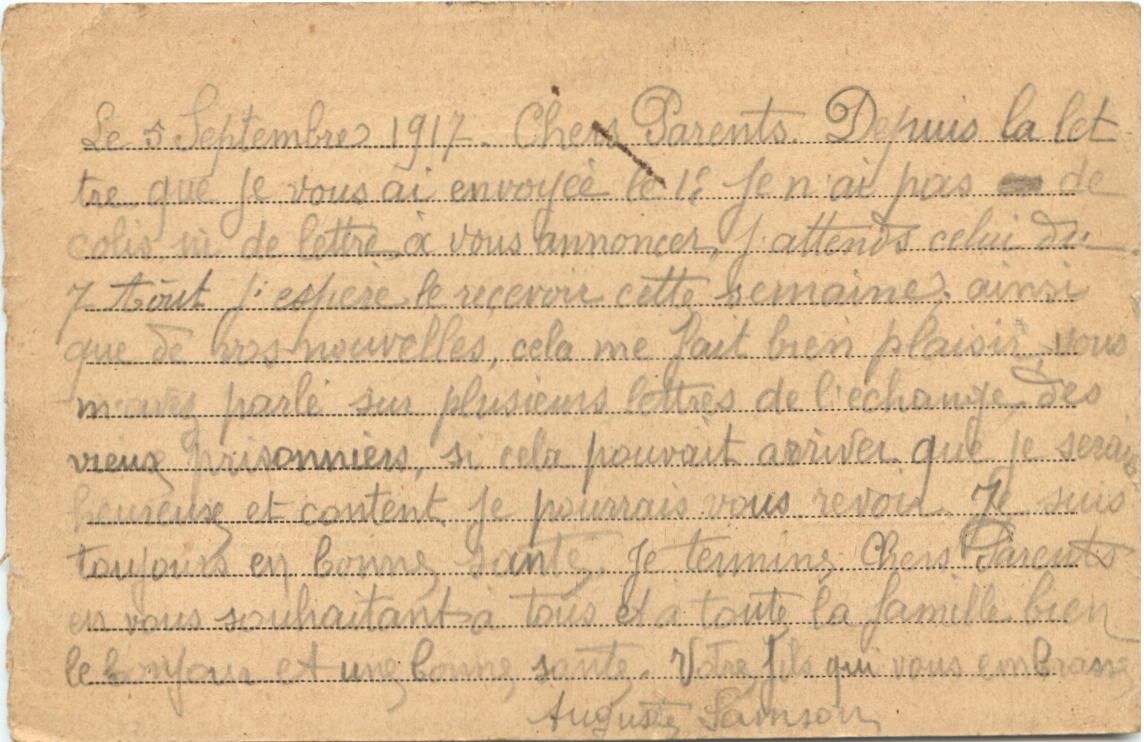 Le 5 Septembre 1917. Chers Parents. Depuis la let
tre que je vous ai envoyée le 1e je n'ai pas de
colis ni de lettre à vous annoncer, j'attends celui du
7 Août j'espère le reçevoir cette semaine. ainsi
que de vos nouvelles, cela me fait bien plaisir, vous
m'avez parlé sur plusieurs lettres de l'échange des
vieux prisonniers, si cela pouvait arriver que je serais
heureux et content je pourrais vous revoir. Je suis
toujours en bonne santé. Je termine Chers Parents
en vous souhaitant à tous et à toute la famille bien
le bonjour et une bonne santé. Votre fils qui vous embrasse
Auguste Samson